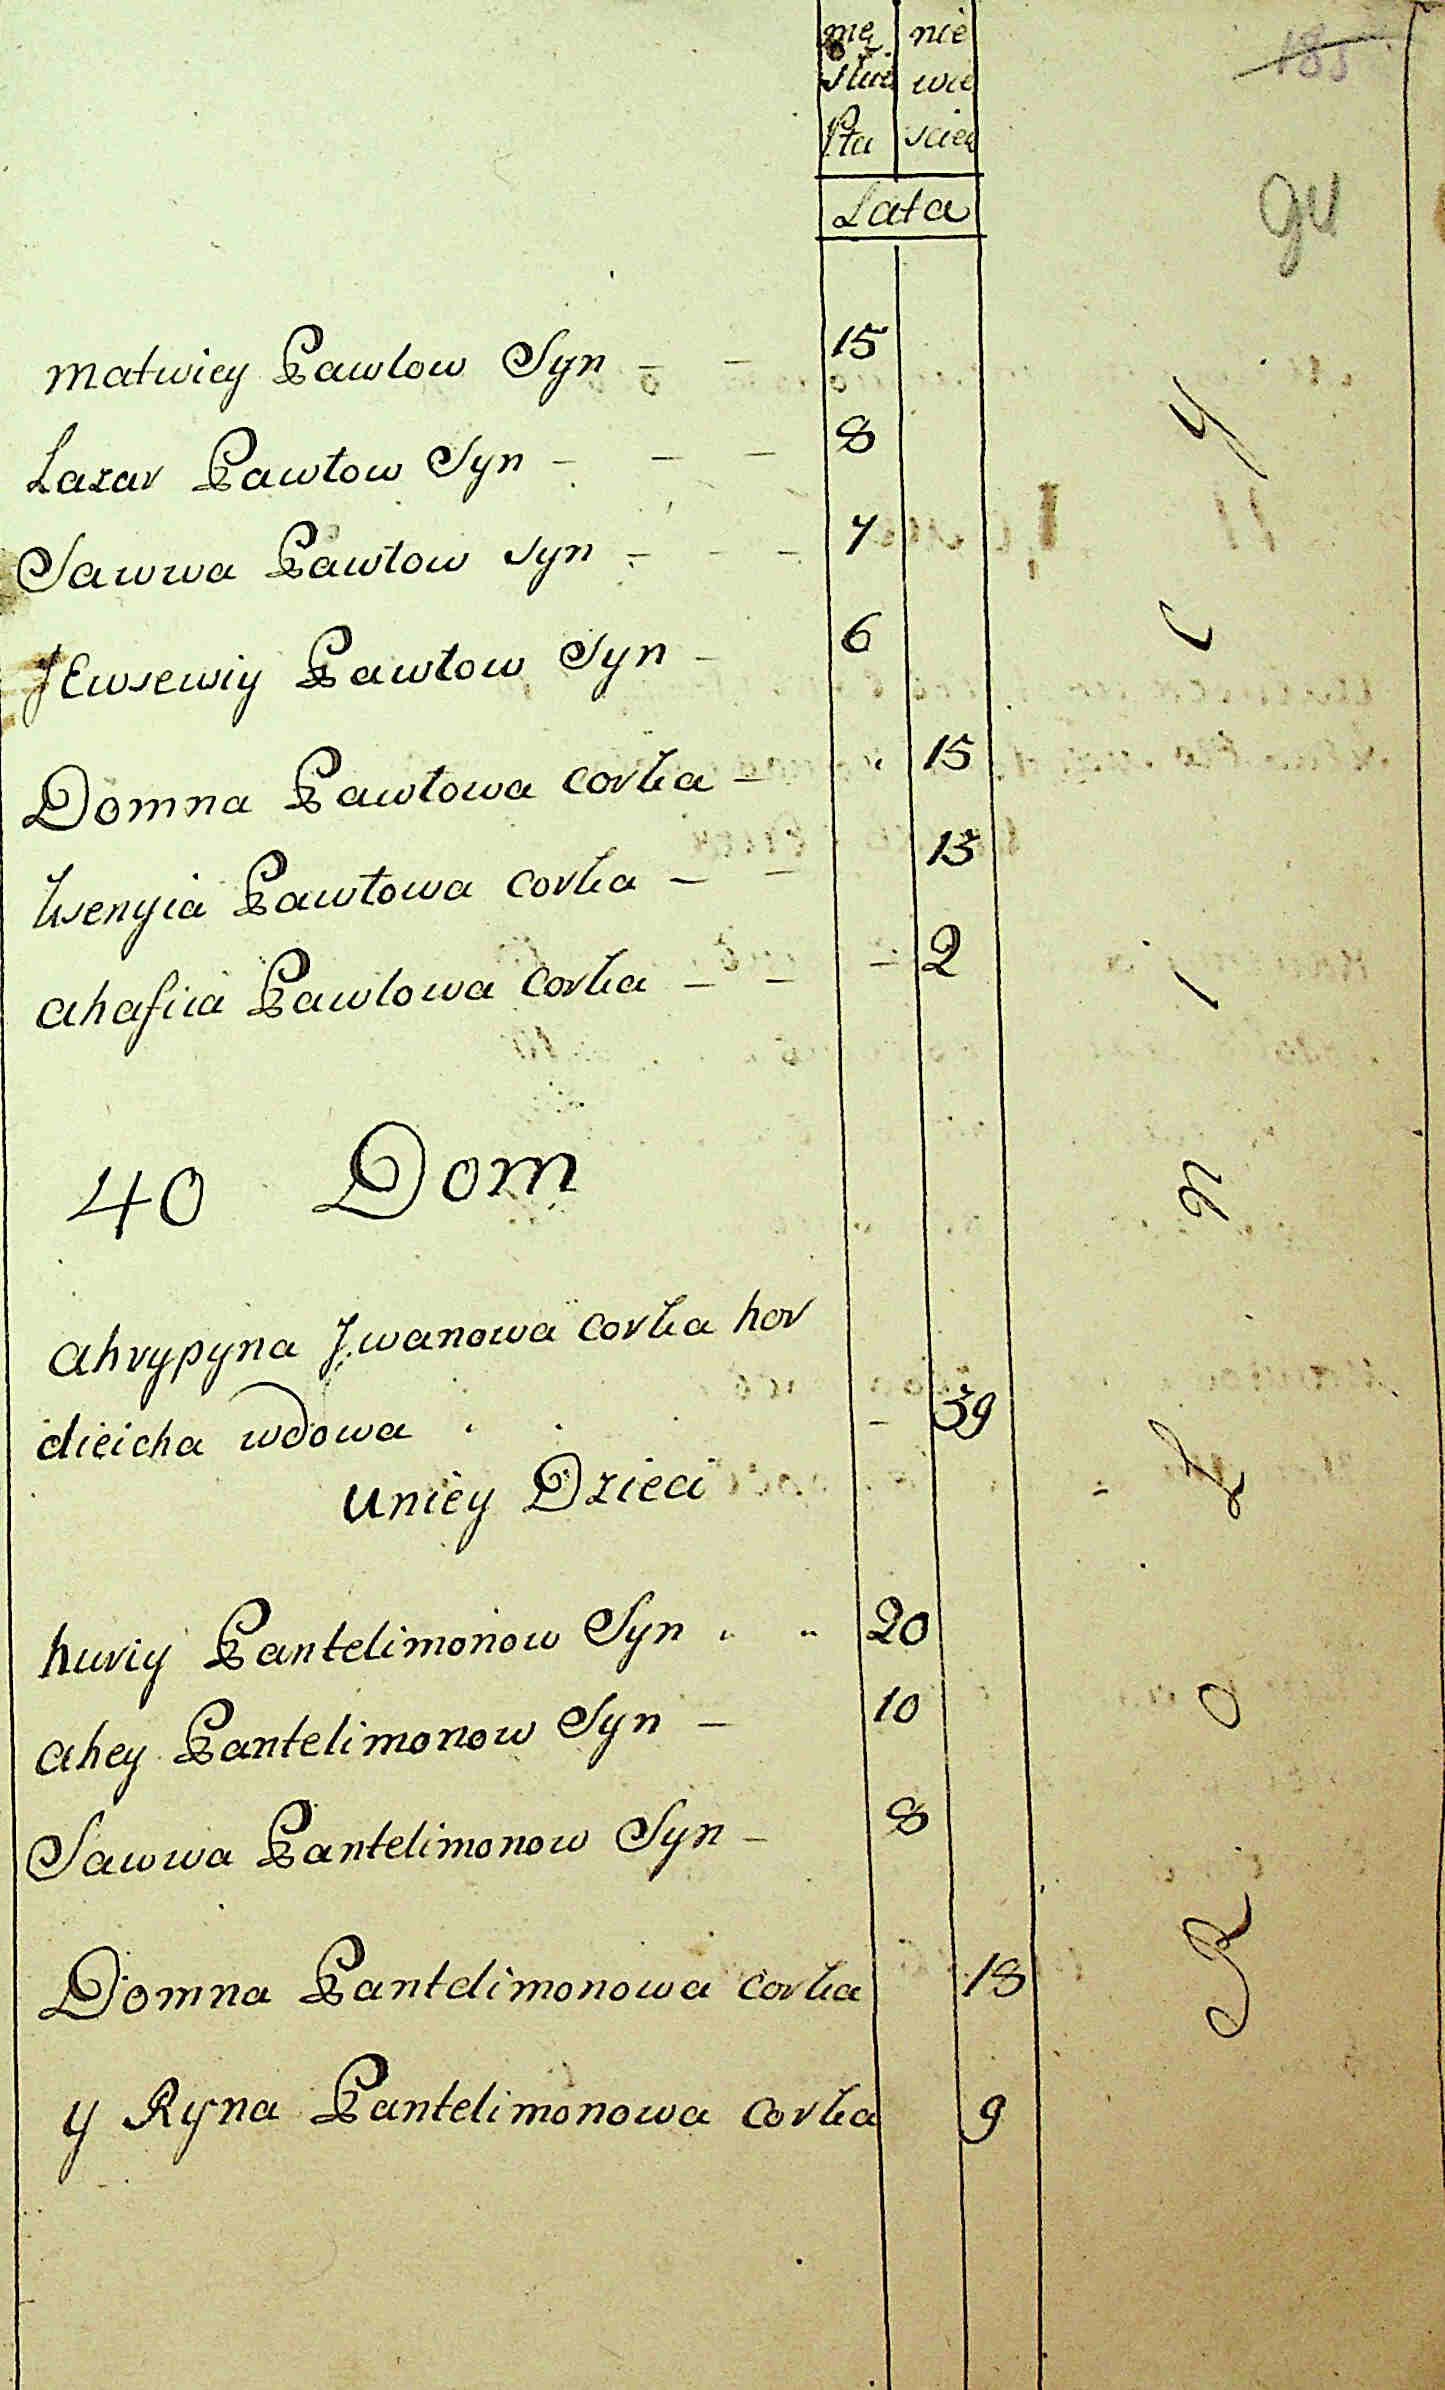 mę nie
skie wie
Płu sciey
Lata
gu
matwiey Pawlow Syn - - 15
Lazar Pawłow Syn - - - 8
Sawwa Pawłow syn - - - 7
JEwsewiy Pawłow Syn - 6
Domna Pawłowa corka - " 15
ksenyia Pawłowa corka - - 13
ahafiia Pawlowa corka - - - 2
40 Dom
ahrypyna Jwanowa corka hor
dieicha wdowa - 39
uniey Dzieci
huriy Pantelimonow Syn " " 20
ahey Pantelimonow Syn - 10
Sawwa Pantelimonow Syn - 8
Domna Pantelimonowa corka 18
y Ryna Pantelimonowa corka 9
Rolnicy